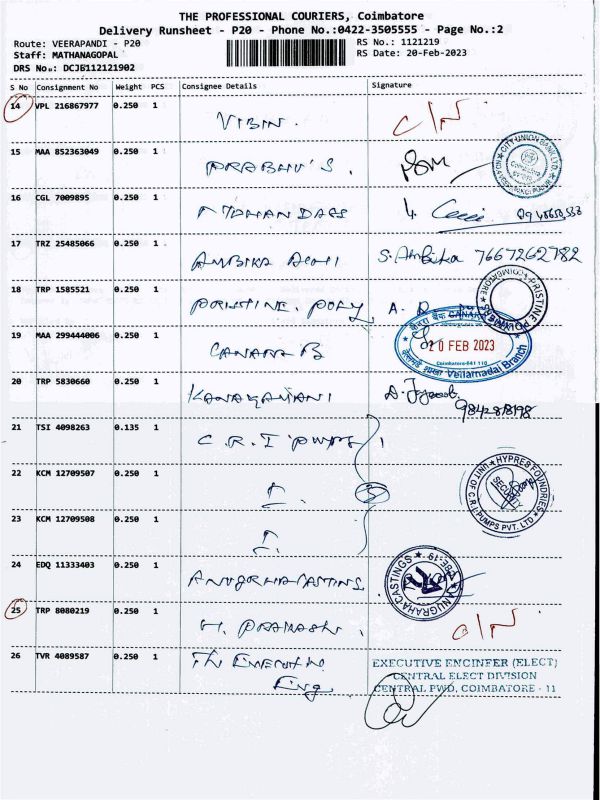 THE PROFESSIONAL COURIERS, Coimbatore
Delivery Runsheet - P20 - Phone No.:0422-3505555 - Page No.:2
Route: VEERAPANDI - P20
RS No.: 1121219
Staff: MATHANAGOPAL
RS Date: 20-Feb-2023
DRS No.: DCJB112121902
S No Consignment No Weight PCS Consignee Details Signature
14 VPL 216867977 0.250 1 VIBIN. C/N
15 MAA 852363049 0.250 1 PRABHU'S.
CITY UNION BANK LTD.
16 CGL 7009895 0.250 1
17 TRZ 25485066 0.250 1 AMBIKA S. Ambika 7667262782
18 TRP 1585521 0.250 1 PRISTINE. POLY A. R
PRISTINE COIMBATORE
19 MAA 299444006 0.250 1 CANARA B
केनरा बैंक CANARA
20 FEB 2023
Coimbatore-641
Vellamadai Branch
20 TRP 5830660 0.250 1 KANAGAMANI
9842878198
21 TSI 4098263 0.135 1 C.R.I PUMPS
22 KCM 12709507 0.250 1 3
HYPRES FOUNDRIES
SECURITY
UNIT OF C.R.I.PUMPS PVT. LTD
23 KCM 12709508 0.250 1
24 EDQ 11333403 0.250 1 ANUGRHA CASTINGS
ANUGRAHA CASTINGS CBE-19
25 TRP 8080219 0.250 1 H. PRAKASH. D/N
26 TVR 4089587 0.250 1 The Executive
Eng
EXECUTIVE ENGINFER (ELECT)
CENTRAL ELECT DIVISION
CENTRAL PWD, COIMBATORE - 11